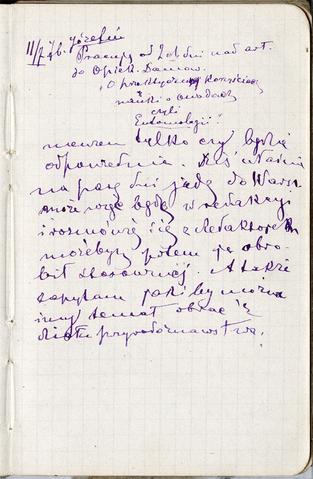 11/7 46. Józefin
Pracuję od 2ch dni nad art.
do Opiek. Domow.
"O praktycznej korzyści
nauki o owadach
czyli
Entomologii"
niewiem tylko czy będzie
odpowiednia.
na parę dni jadę do Warsz
może więc będę w redakcji
i rozmówię się z Redaktorem
możebym potem ją obro-
bił stosowniej. A także
zapytam jaki by można
inny temat obrać
działu przyrodoznawstwa.